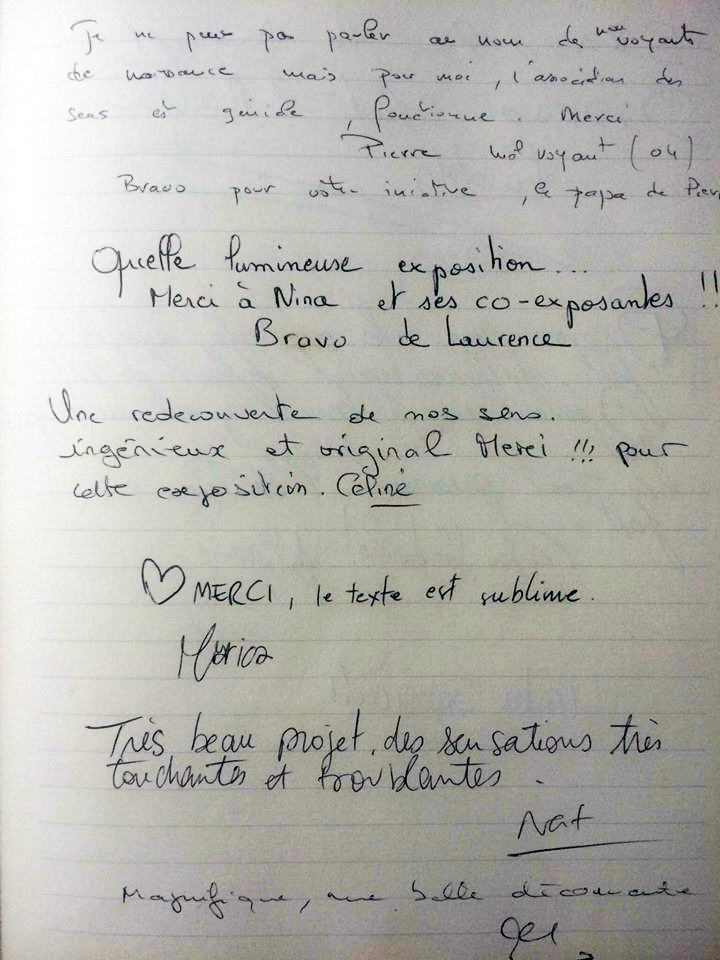 Je ne peux pas parler au nom de non voyants
de naissance mais pour moi, l'association des
sens est géniale, fonctionne. Merci
Pierre mal voyant (04)
Bravo pour votre iniative, le papa de Pier
Quelle lumineuse exposition...
Merci à Nina et ses co-exposantes !!
Bravo de Laurence
Une redecouverte de nos sens.
ingénieux et original Merci !!! pour
cette exposition. Céline
♡ MERCI, le texte est sublime.
Très beau projet, des sensations très
touchantes et troublantes.
Nat
Magnifique, une belle découverte